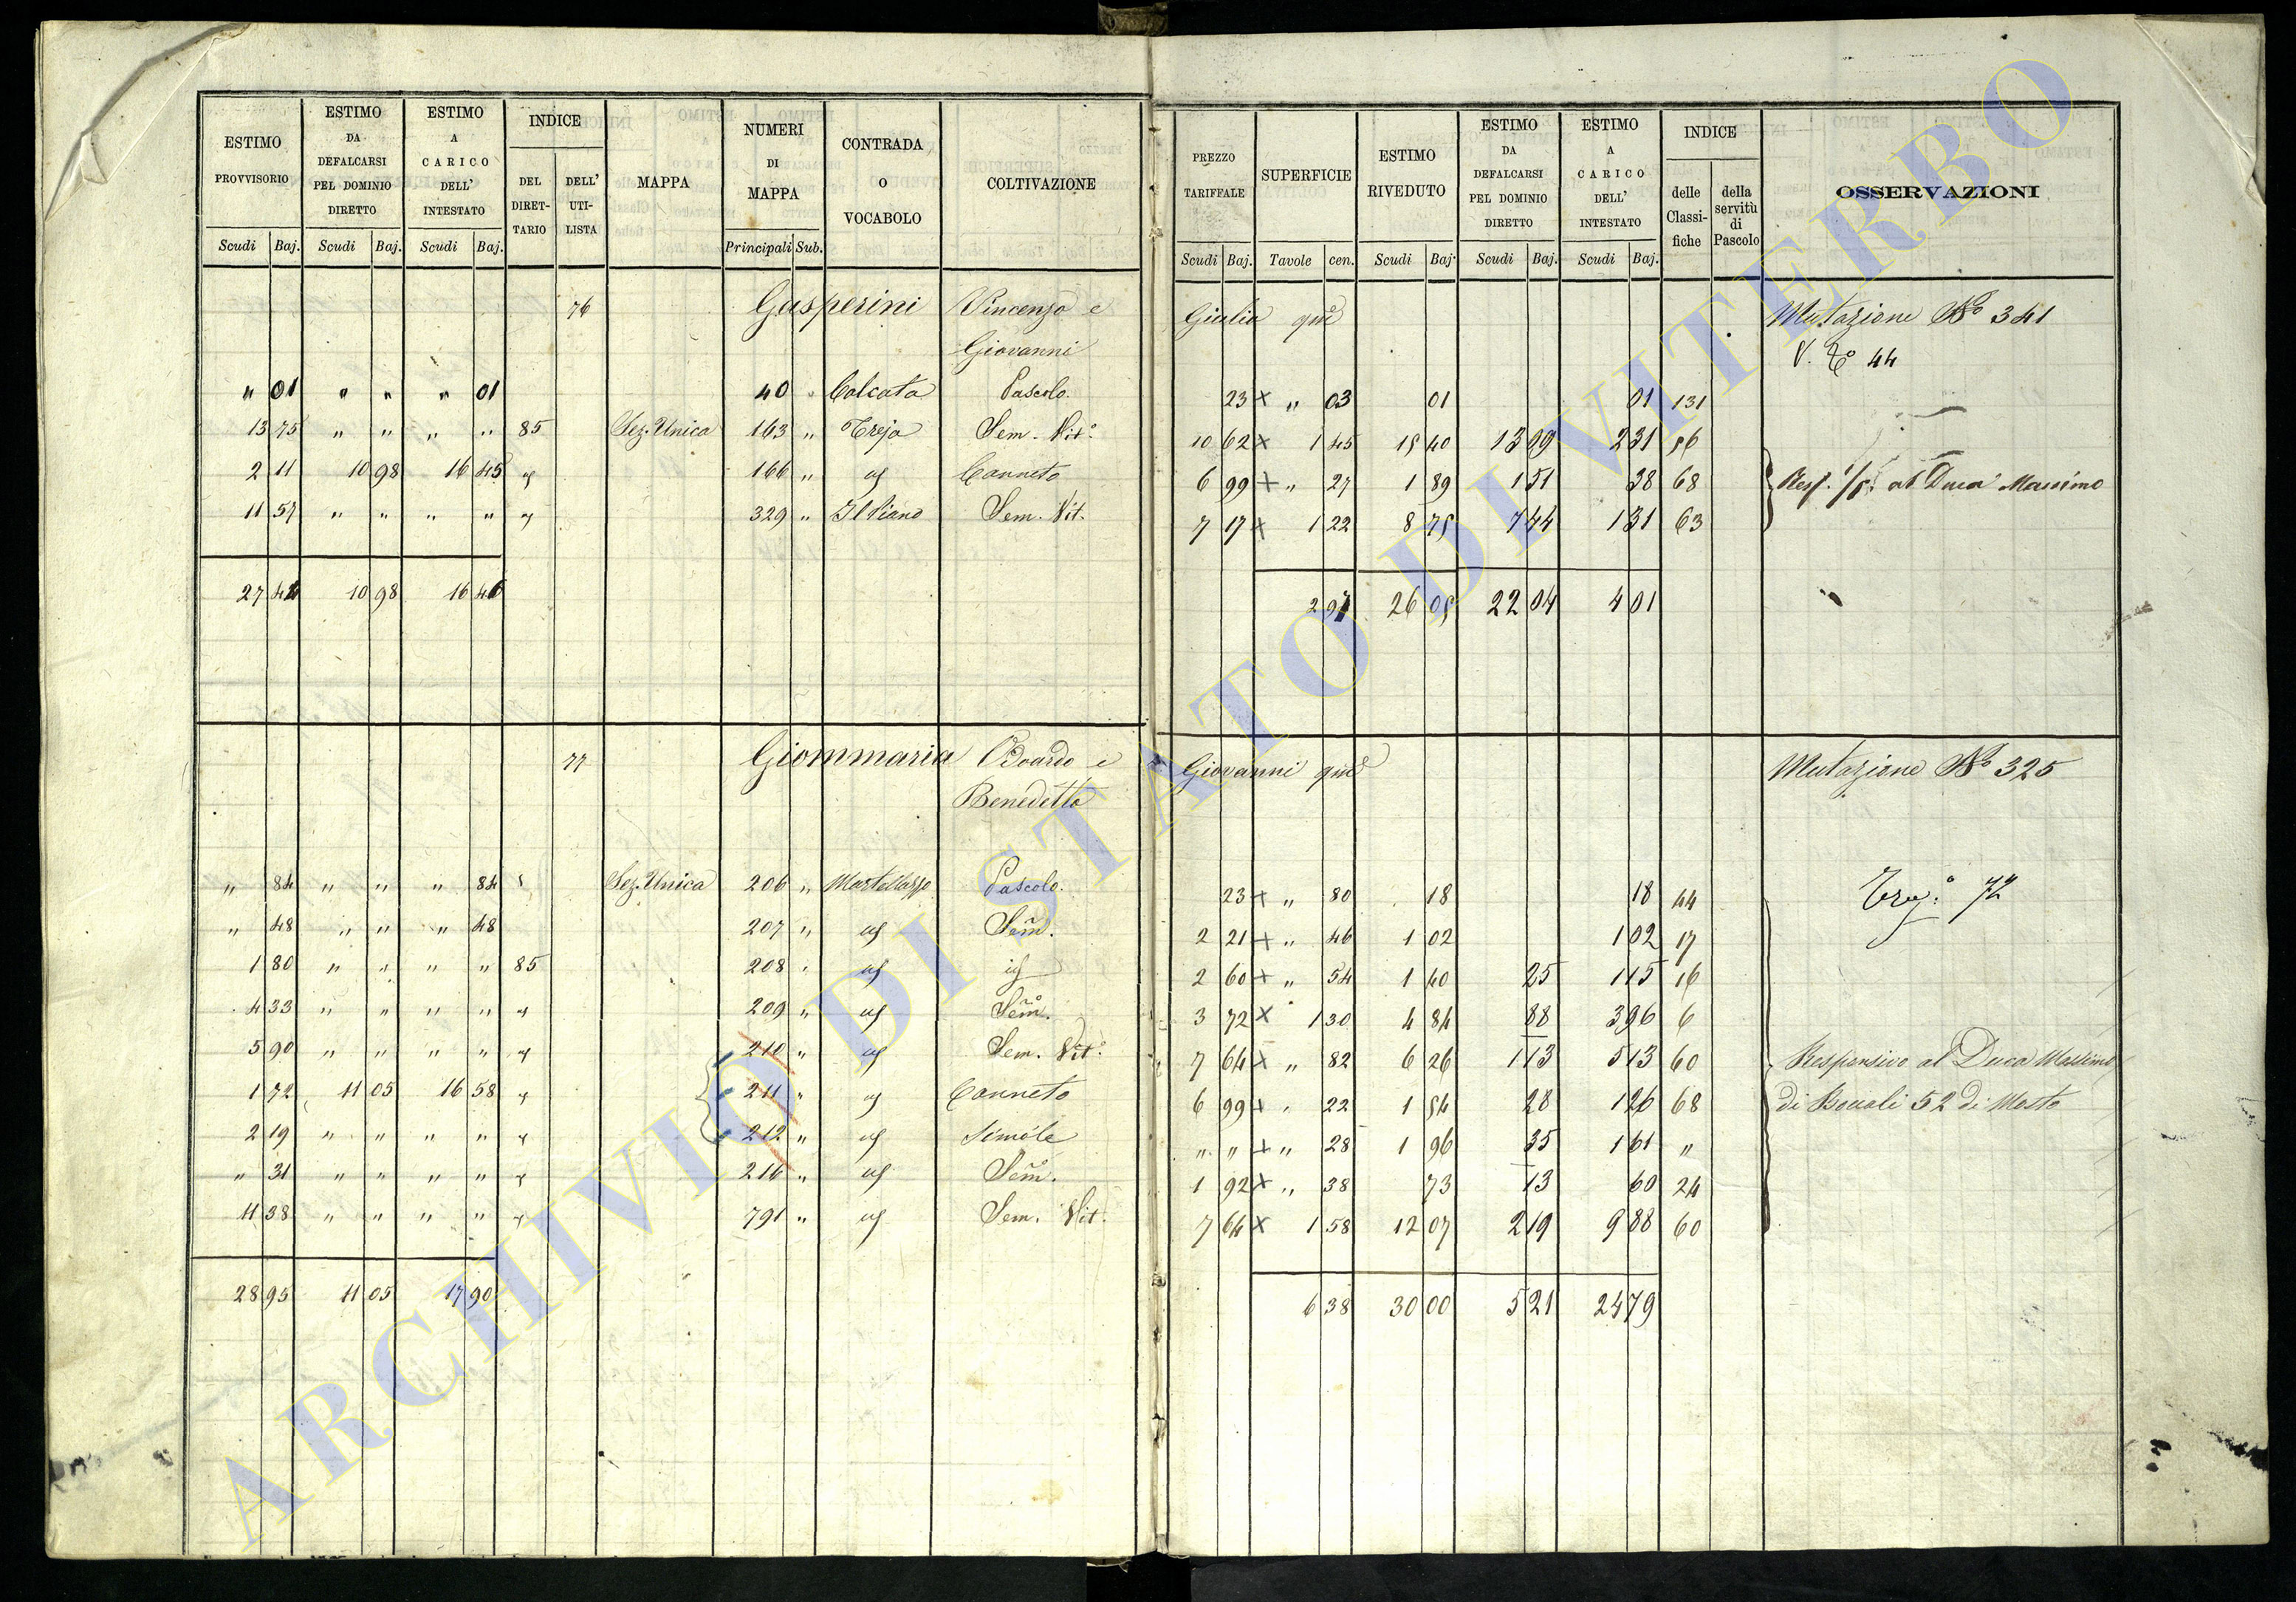 ESTIMO PROVVISORIO | ESTIMO DA DEFALCARSI PEL DOMINIO DIRETTO | ESTIMO A CARICO DELL' INTESTATO | INDICE | MAPPA | NUMERI DI MAPPA | CONTRADA O VOCABOLO | COLTIVAZIONE | PREZZO TARIFFALE | SUPERFICIE | ESTIMO RIVEDUTO | ESTIMO DA DEFALCARSI PEL DOMINIO DIRETTO | ESTIMO A CARICO DELL' INTESTATO | INDICE | OSSERVAZIONI
Scudi Baj. | Scudi Baj. | Scudi Baj. | DEL DIRETTARIO | DELL' UTILISTA | Principali Sub. | Scudi Baj. | Tavole cen. | Scudi Baj. | Scudi Baj. | Scudi Baj. | delle Classifiche | della servitù di Pascolo
76 Gasperini Vincenzo e Giulia qm̃ Mutazione No 341
Giovanni V. To 44
" 01 " " " 01 40 " Calcata Pascolo. 23 x " 03 01 01 131
13 75 " " " " 85 Sez. Unica 163 " Treja Sem. Vit.o 10 62 x 1 45 15 40 13 09 2 31 56
2 11 10 98 16 45 " 166 " " Canneto 6 99 x " 27 1 89 1 51 38 68 Resp. 1/5. al Duca Massimo
11 57 " " " " " 329 " Il Piano Sem. Vit. 7 17 x 1 22 8 75 7 44 1 31 63
27 44 10 98 16 46 2 97 26 05 22 04 4 01
77 Giommaria Odoardo e Giovanni qm̃ Mutazione No 325
Benedetto
" 84 " " " 84 Sez. Unica 206 " Martellazzo Pascolo. 23 x " 80 18 18 44 72
" 48 " " " 48 207 " " Sem̃. 2 21 x " 46 1 02 1 02 17
1 80 " " " " 85 208 " " id 2 60 x " 54 1 40 25 1 15 16
4 33 " " " " " 209 " " Sem̃. 3 72 x 1 30 4 84 88 3 96 6
5 90 " " " " " 210 " " Sem. Vit.o 7 64 x " 82 6 26 1 13 5 13 60 Responsivo al Duca Massimo
1 72 11 05 16 58 " 211 " " Canneto 6 99 x " 22 1 54 28 1 26 68 di Bocali 52 di Mosto
2 19 " " " " " 212 " " Simile " " x " 28 1 96 35 1 61 "
" 31 " " " " " 216 " " Sem̃. 1 92 x " 38 73 13 60 24
11 38 " " " " " 791 " " Sem. Vit. 7 64 x 1 58 12 07 2 19 9 88 60
28 95 11 05 17 90 6 38 30 00 5 21 24 79
ARCHIVIO DI STATO DI VITERBO